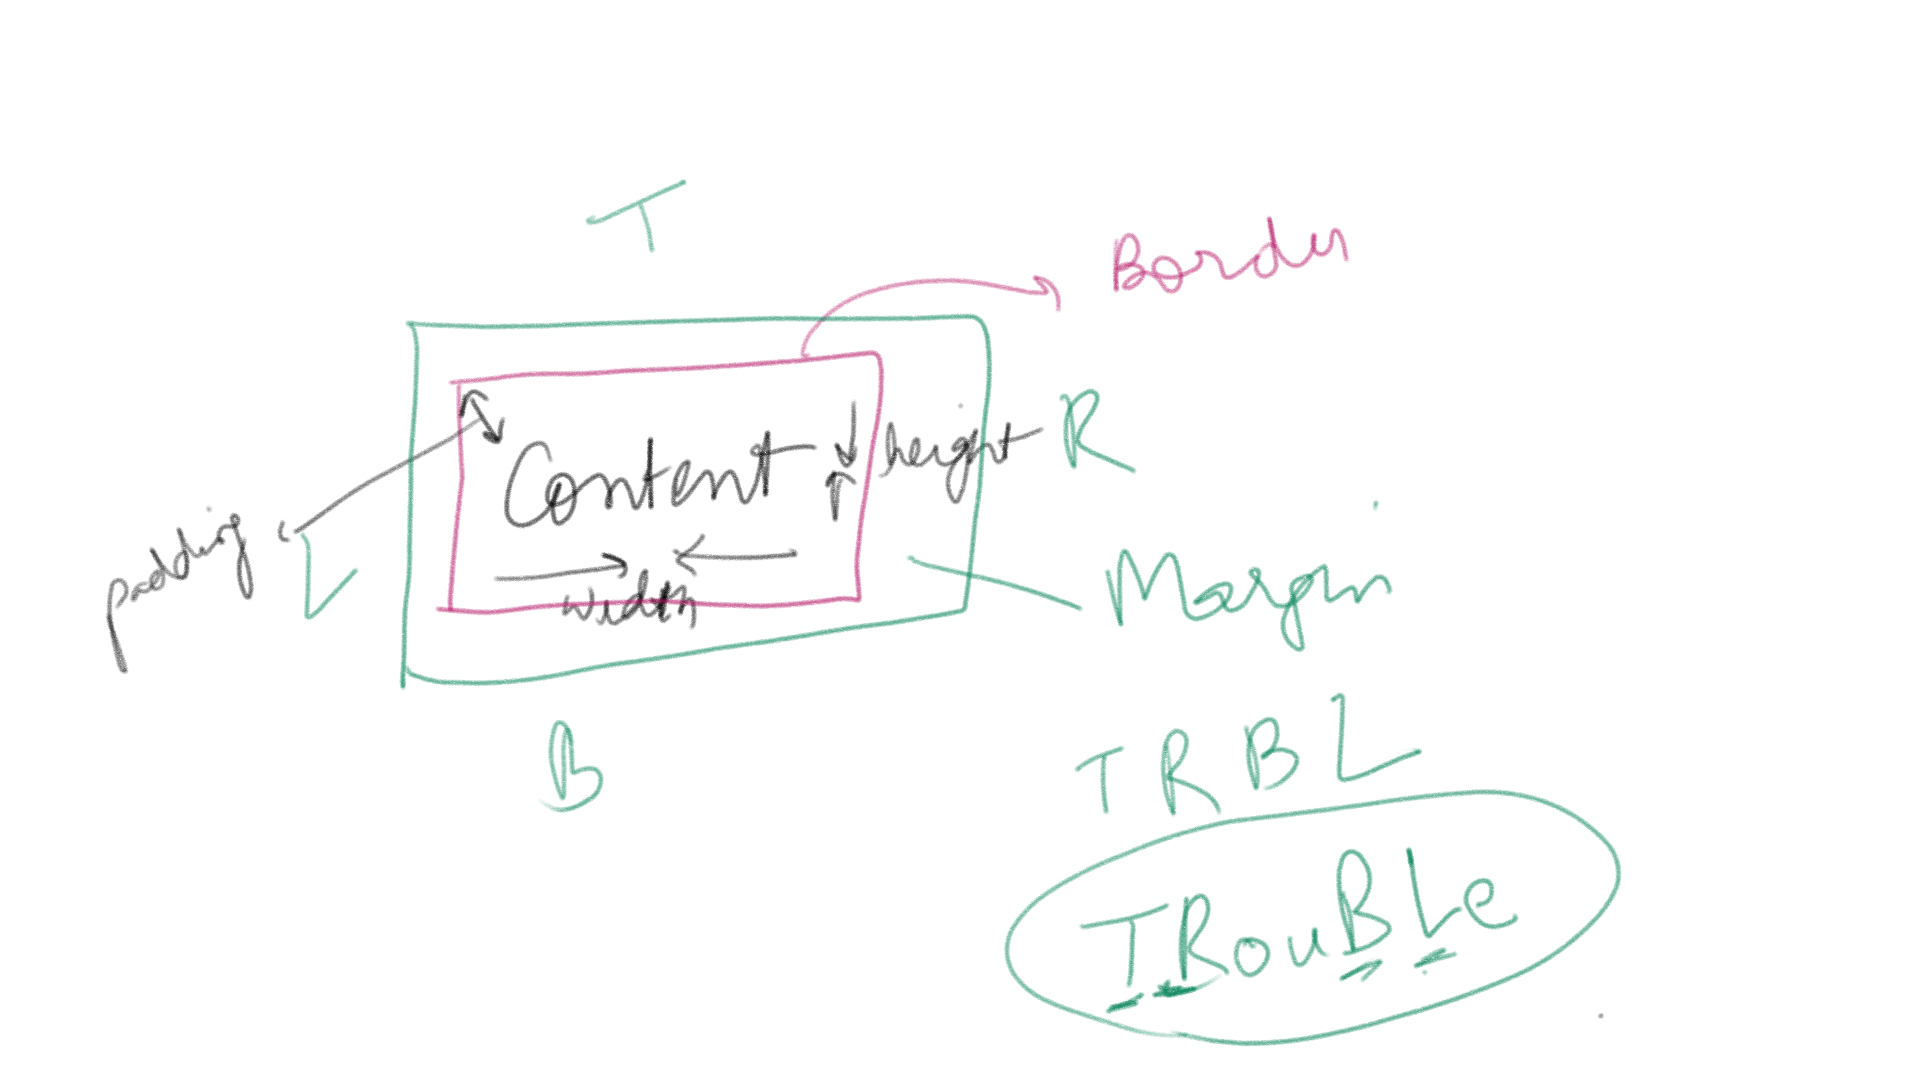 T
Border
Content
height
R
padding
L
width
Margin
B
T R B L
TRouBLe